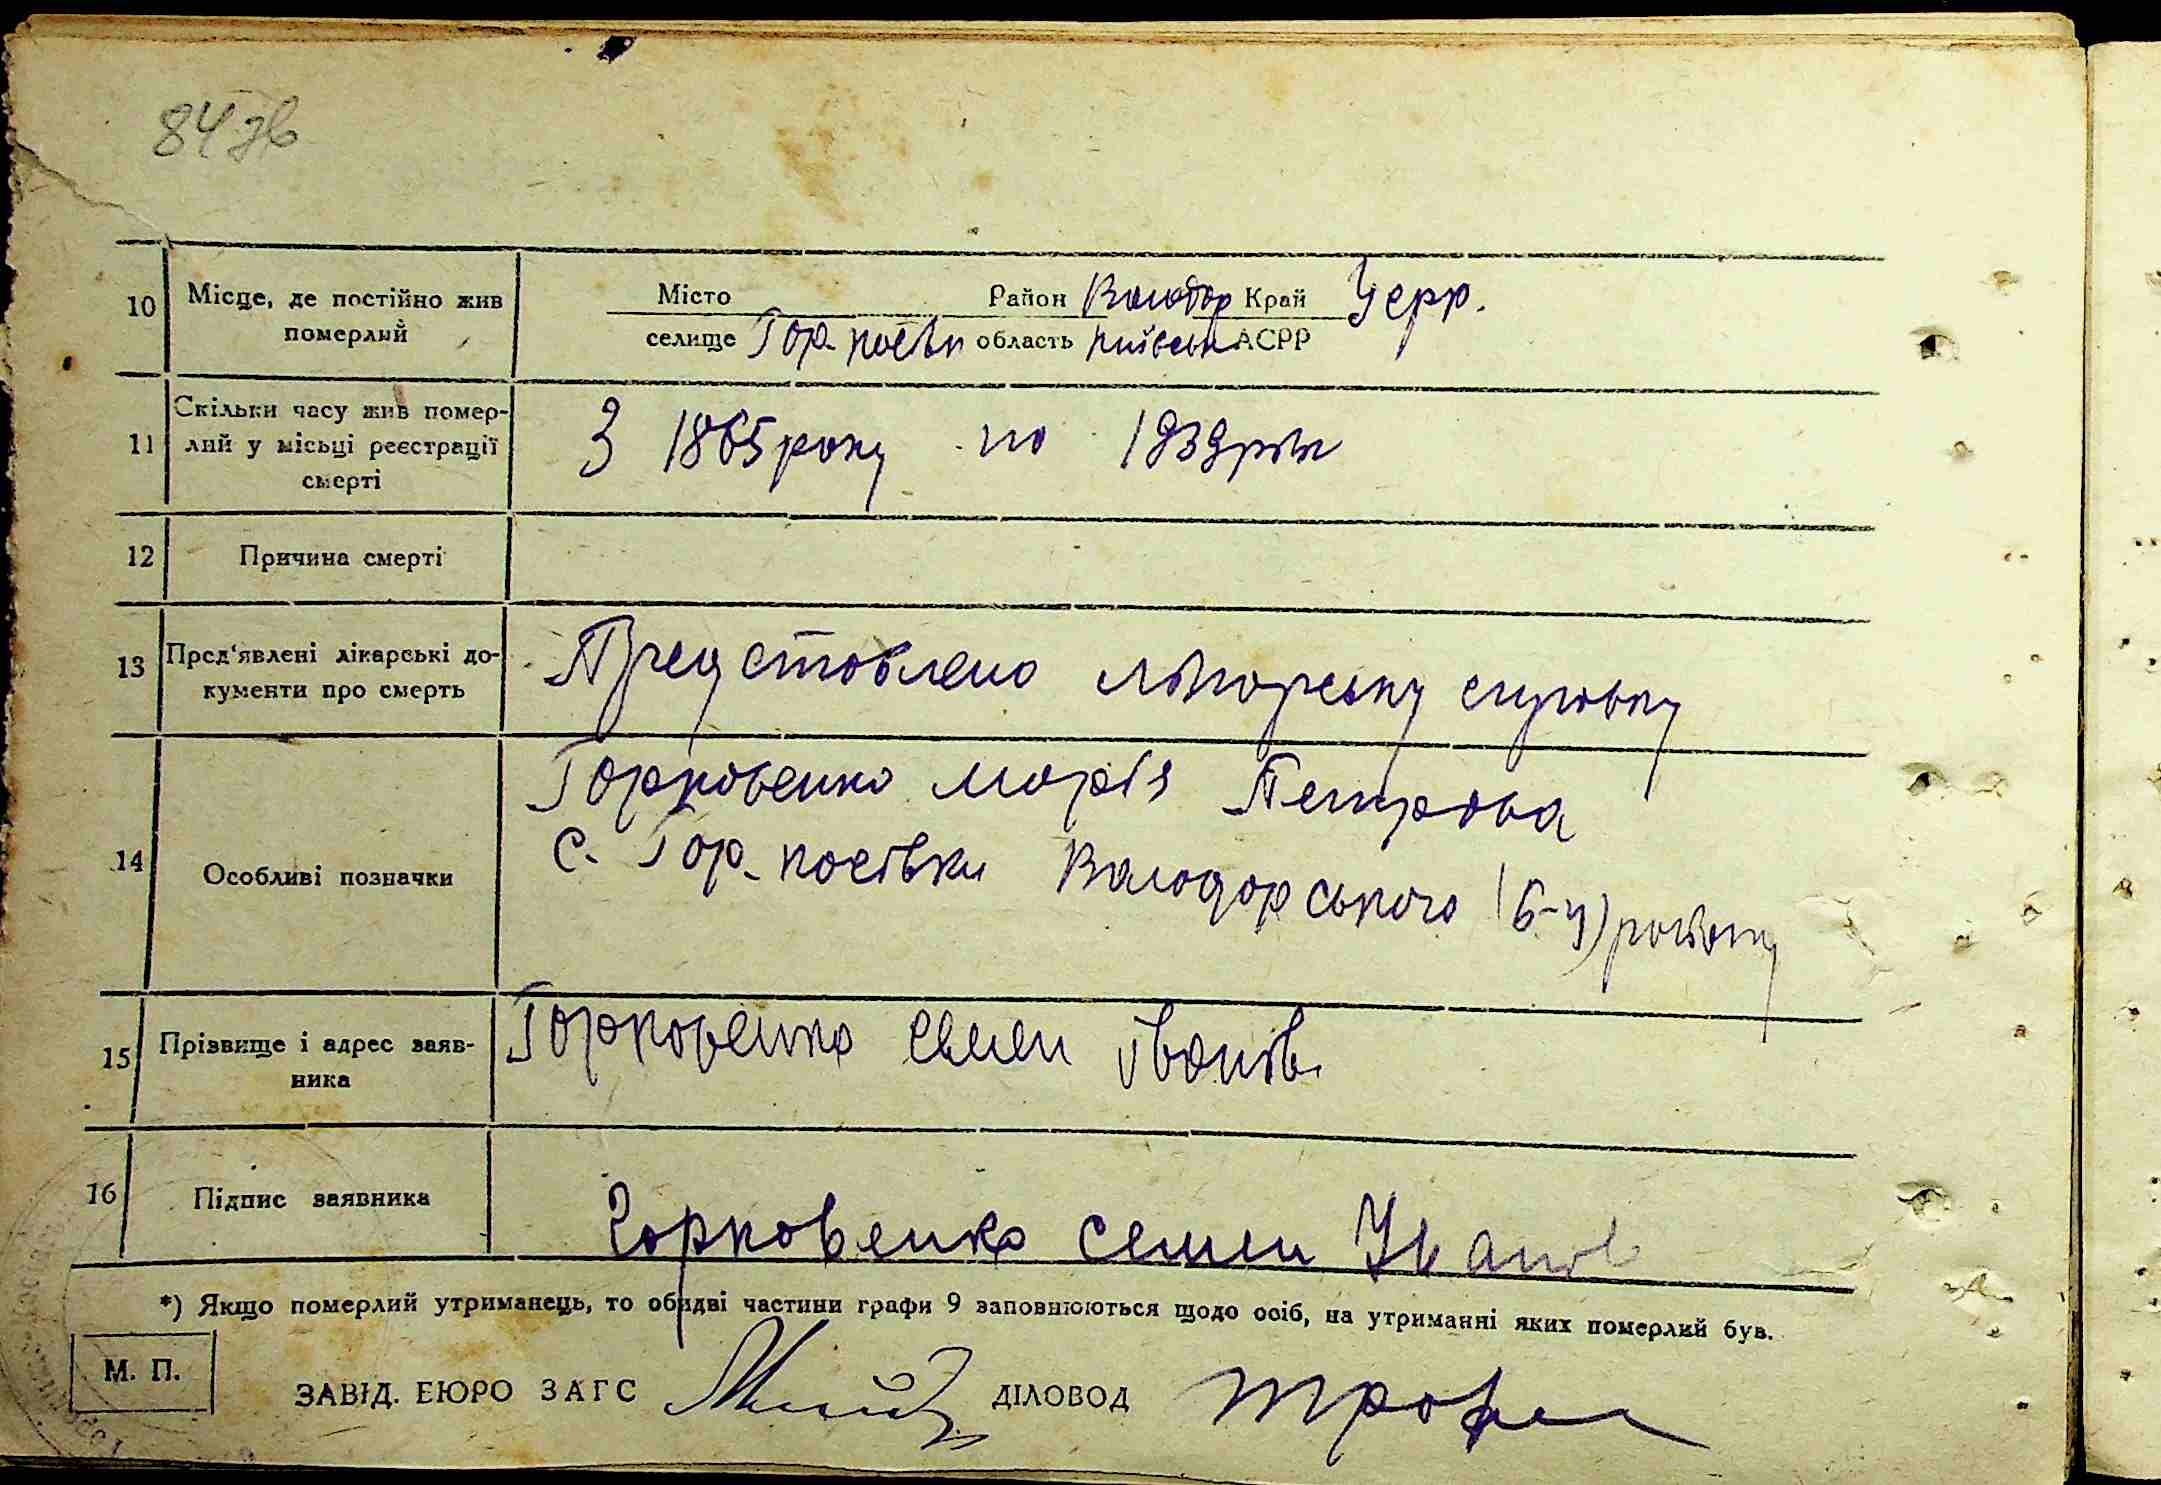 84 зв
10 Місце, де постійно жив померлий
Місто Район Володар Край Усрр.
селище Гор. посівк область київськ АСРР
11 Скільки часу жив помер-
лий у місьці реєстрації
смерті
З 1865 року по 1939 рік
12 Причина смерті
13 Пред'явлені лікарські до-
кументи про смерть
Представлено лікарську справку
14 Особливі позначки
Горковенко марія Петрова
с. Гор. посівки Володарського (б-ч) району
15 Прізвище і адрес заяв-
ника
Горковенко семен іванів.
16 Підпис заявника
Горковенко семен Иванов
*) Якщо померлий утриманець, то обидві частини графи 9 заповнюються щодо осіб, на утриманні яких померлий був.
М. П.
ЗАВІД. БЮРО ЗАГС ДІЛОВОД